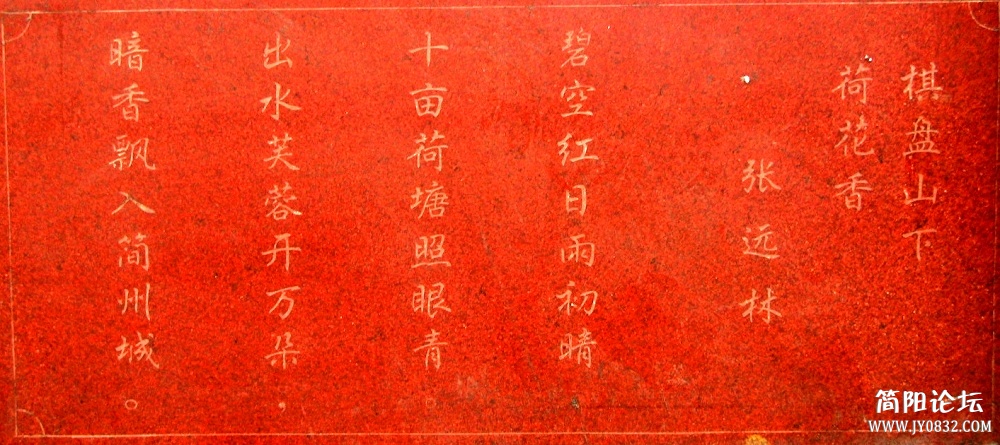 棋盘山下
荷花香
张远林
碧空红日雨初晴
十亩荷塘照眼青。
出水芙蓉开万朵，
暗香飘入简州城。
简阳论坛
www.JY0832.com